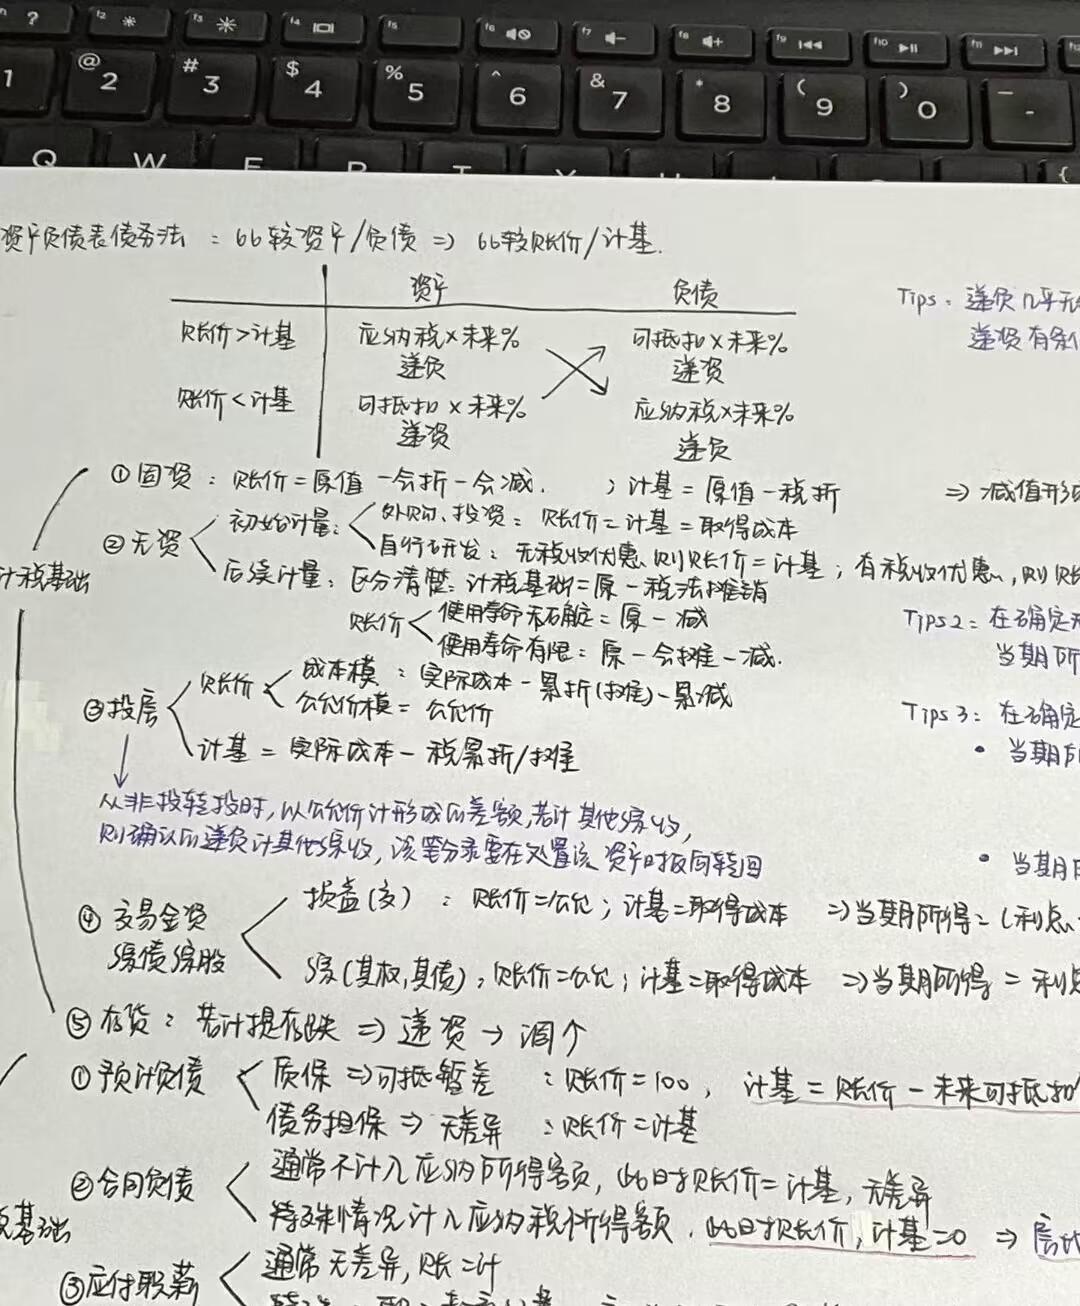 ? * *
@ 2 # 3 $ 4 % 5 ^ 6 & 7 * 8 ( 9 ) 0 -
1
Q W E R T Y {
资产负债表债务法：比较资产/负债 ⇒ 比较账价/计基.
资产 负债
账价>计基 应纳税×未来% 可抵扣×未来%
递负 递资
账价<计基 可抵扣×未来% 应纳税×未来%
递资 递负
Tips：递负几乎无
递资有条
①固资：账价=原值-会折-会减. ；计基=原值-税折 ⇒减值形
计税基础
②无资
初始计量：
外购、投资：账价=计基=取得成本
自行研发：无税收优惠则账价=计基；有税收优惠，则账
后续计量：区分清楚：计税基础=原-税法摊销
账价
使用寿命不确定=原-减
使用寿命有限=原-会摊-减.
Tips2：在确定无
当期所
③投房
账价
成本模：实际成本-累折(摊)-累减
公允价模=公允价
计基=实际成本-税累折/摊
Tips3：在确定
• 当期所
从非投转投时,以公允价计形成的差额,若计其他综收,
则确认的递负计其他综收,该笔分录要在处置该资产时反向转回
• 当期
④交易金资
综债综股
损益(交)：账价=公允；计基=取得成本 ⇒当期所得=(利总
综(其权,其债)，账价=公允；计基=取得成本 ⇒当期所得=利总
⑤存货：若计提存跌⇒递资→调个
①预计负债
质保⇒可抵暂差：账价=100，计基=账价-未来可抵扣
债务担保⇒无差异：账价=计基
②合同负债
通常不计入应纳所得额，此时账价=计基,无差异
特殊情况计入应纳税所得额，此时账价,计基=0 ⇒
税基础
③应付职薪
通常无差异,账=计